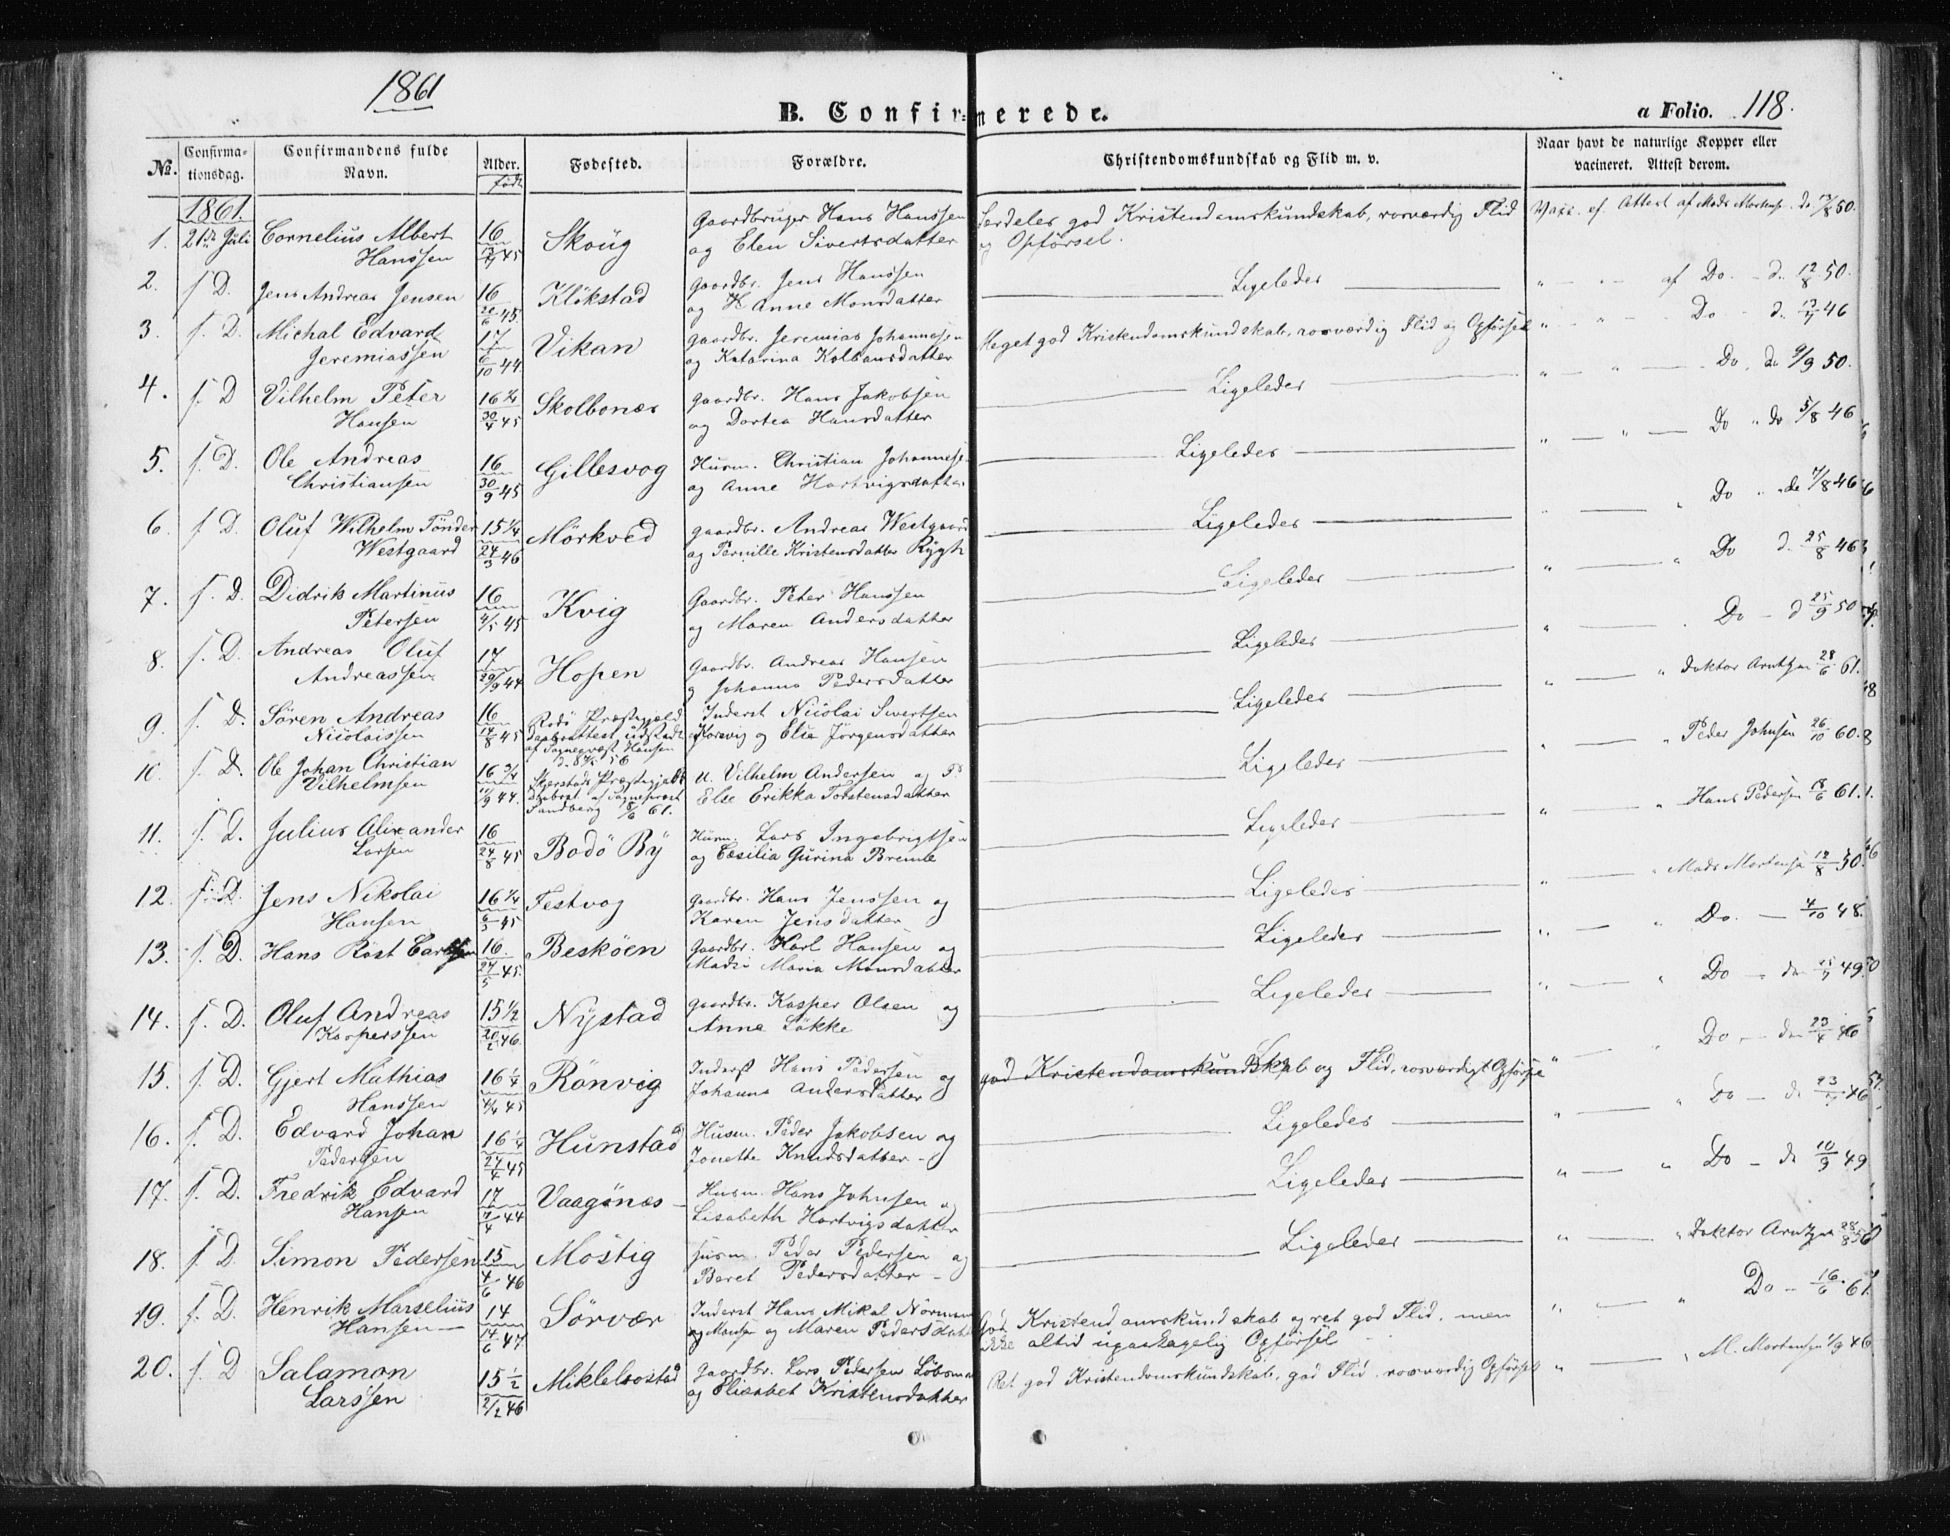 1861
B. Confirmerede.
a Folio. 118.
No.
Confirmationsdag.
Confirmandens fulde Navn.
Alder.
født
Fødested.
Forældre.
Christendomskundskab og Flid m. v.
Naar havt de naturlige Kopper eller vacineret. Attest derom.
1861.
1. 21de Juli Cornelius Albert Hanssen 16 45 Skoug Gaardbruger Hans Hanssen og Elen Sivertsdatter Særdeles god Kristendomskundskab, rosværdig Flid og Opførsel. Vaxc. ef. Attest af Mads Mortens. d. 12/8 50.
2. s. D. Jens Andreas Jensen 16 20/6 45. Klökstad Gaardbr. Jens Hanssen og H Anne Monsdatter Ligeledes " " af Do. d. 12/8 50.
3. s. D. Michal Edvard Jeremiassen 17 6/10 44. Vikan gaardbr. Jeremias Johannesen og Katarina Kolbansdatter Meget god Kristendomskundskab, rosværdig Flid og Opførsel " " Do d. 46
4. s. D Vilhelm Peter Hansen 16 1/4 30/4 45 Skolbones gaardbr. Hans Jakobsen og Dortea Hansdatter Ligeledes " " Do. de 9/9 50.
5. s. D. Ole Andreas Christiansen 16 30/9 45 Gillesvog Husm. Christian Johannese og Anne Hartvigsdatter Ligeledes " " Do " de 5/8 46
6. s. D. Oluf Wilhelm Tönder Westgaard 15 1/4 24/3 46 Mörkved gaardbr. Andreas Westgaard og Pernille Kristensdatter Rygh Ligeledes " Do de 7/8 46
7. s. D. Didrik Martinus Petersen 16 4/5 45 Kvig Gaardbr. Peter Hanssen og Maren Andersdatter Ligeledes " " Do d. 25/8 46
8. s. D. Andreas Oluf Andreassen 17 29/9 44 Hopen Gaardbr. Andreas Hansen og Johanna Pedersdatter Ligeledes " Do d 25/9 50
9. s. D. Sören Andreas Nicolaissen 16 14/8 45 Rödö Præstegjæld Daabsattest udstædt af Sognepræst Hansen Inderst Nicolai Sivertsen og Elie Jörgensdatter Ligeledes " " Doktor Arntzen 28/6 61.
10. s. D. Ole Johan Christian Vilhelmsen 16 3/4 11/9 44. Skjerstads Præstegjæld Daabsat. af Sognepræst Sandberg 61. U. Vilhelm Andersen og P. Else Erikka Torstensdatter Ligeledes " " Peder Johnsen 26/10 60.
11. s. D. Julius Alixander Larsen 16 24/8 45 Bodö By Husm. Lars Ingebrigtsen og Cæsilia Gurina Breme Ligeledes " " Hans Pedersen 18/6 61.
12. s. D. Jens Nikolai Hansen 16 1/4 6/3 45 Festvog Gaardbr. Hans Jenssen og Karen Jensdatter Ligeledes " " Mads Mortensen 12/8 50.
13. s. D. Hans Röst Carlsen 16. 24/5 45. Besköen Gaardbr. Karl Hansen og Madsi Maria Monsdatter Ligeledes " " Do. 4/10 48.
14. s. D. Oluf Andreas Kaspersen 15 1/2 20/2 46. Nystad gaardbr. Kasper Olsen og Anne Lökke Ligeledes " " Do de 49.
15. s. D. Gjert Mathias Hanssen 16 1/4 4/4 45 Rönvig Inderst Hans Pedersen og Johanna Andersdatter god Kristendomskundskab og Flid, rosværdigt Opførsel " " Do de 23/4 46
16. s. D. Edvard Johan Pedersen 16 1/4 24/4 45 Hunstad Husm. Peder Jakobsen og Jonette Knudsdatter Ligeledes " " Do de 46
17. s. D. Fredrik Edvard Hansen 17 7/4 44 Vaagönes Husm. Hans Johnsen og Lisabeth Hartvigsdatter Ligeledes " " Do de 10/9 49
18. s. D. Simon Pedersen 15 4/6 46 Möstig Husm. Peder Pedersen og Beret Pedersdatter Ligeledes " " Doktor Arntzen 28/8
19. s. D. Henrik Marselius Hansen 14 14/6 47. Sörvær Inderst Hans Mikal Norman og Maren Pedersdat God Kristendomskundskab og ret god Flid, men ikke altid upaaklagelig Opførsel " " Do 16/6 61.
20. s. D Salamon Larssen 15 1/2 2/2 46 Miklelbostad Gaardbr. Lars Pedersen og Eliesabet Kristensdatter Ret god Kristendomskundskab, god Flid, rosværdig Opførsel " " M. Mortensen 1/9 46